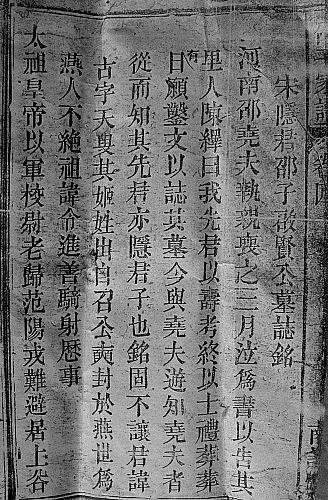 宋隱君邵子啟賢公墓誌銘
河南邵堯夫執親喪之三月泣爲書以告其
里人陳繹曰我先君以壽考終以士禮葬葬
有日願鑿文以誌其墓今與堯夫遊知堯夫者
從而知其先君亦隱君子也銘固不讓君諱
古字天與其姬姓出自召公奭封於燕世爲
燕人不絶祖諱令進善騎射歴事
太祖皇帝以軍校尉老歸范陽戎難避居上谷